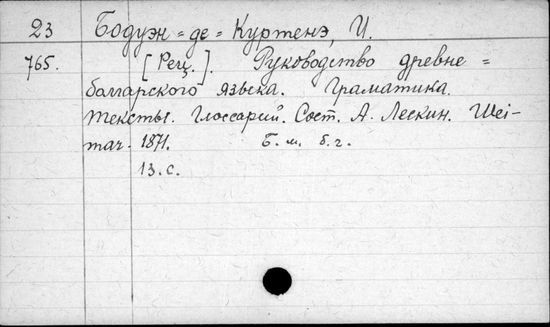 23 Бодуэн-де-Куртенэ, И.
765. [Рец.]. Руководство древне=
болгарского языка. Граматика.
Тексты. Глоссарий. Сост. А. Лескин. Wei-
mar. 1871. Б.м. б.г.
13.с.